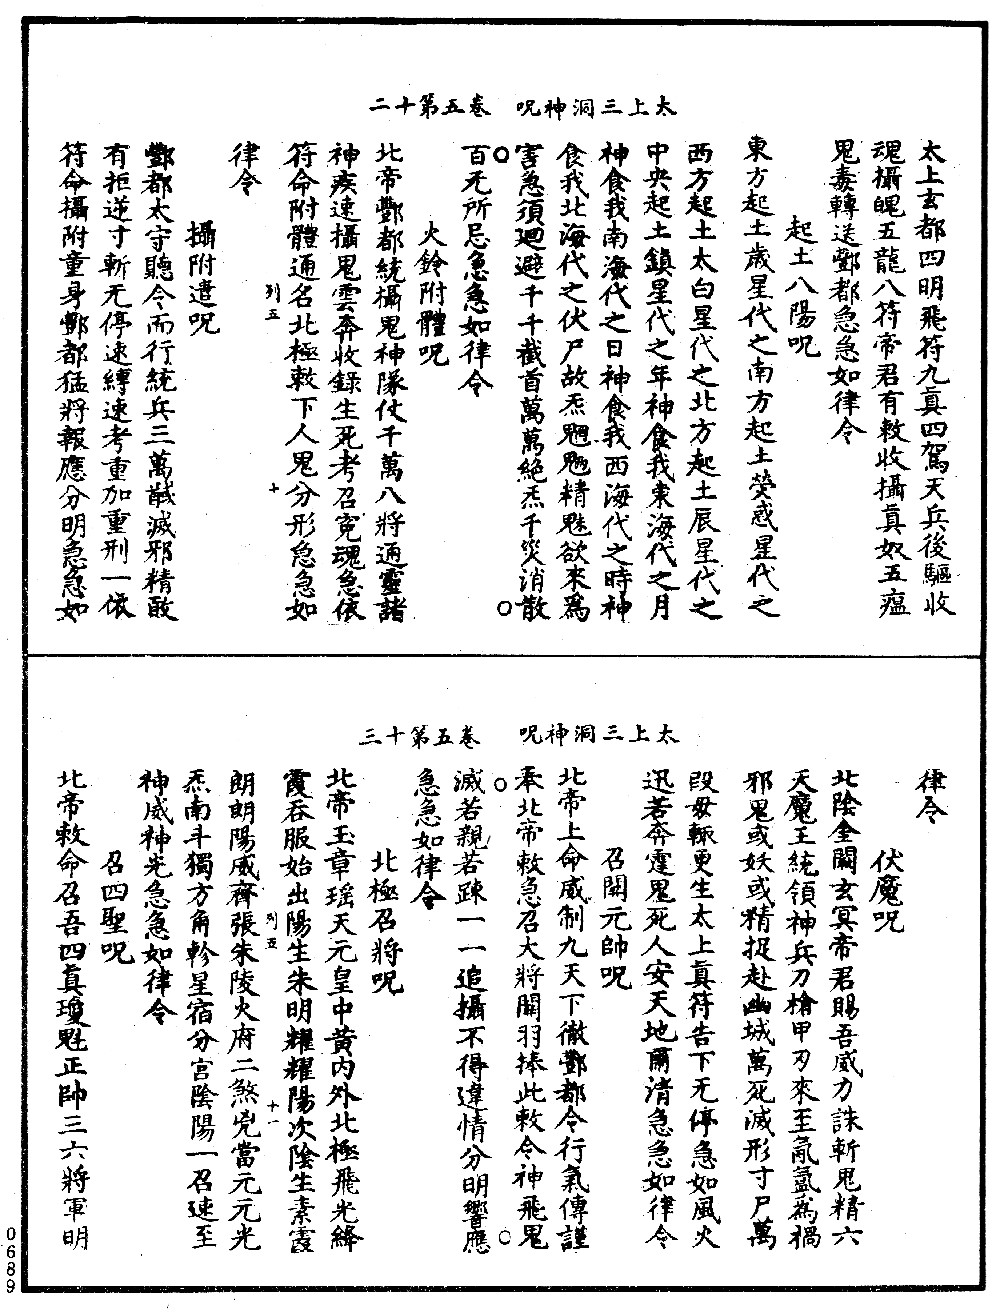 太上三洞神呪　卷五第十二
太上玄都四明飛符九眞四駕天兵後驅收
魂攝魄五龍八符帝君有敕收攝眞奴五瘟
鬼毒轉送酆都急急如律令
起土八陽呪
東方起土歲星代之南方起土熒惑星代之
西方起土太白星代之北方起土辰星代之
中央起土鎮星代之年神食我東海代之月
神食我南海代之日神食我西海代之時神
食我北海代之伏尸故炁魍魎精魅欲來爲
害急須迴避千千截首萬萬絕炁千災消散
百无所忌急急如律令
火鈴附體呪
北帝酆都統攝鬼神隊仗千萬八將通靈諸
神疾速攝鬼雲奔收錄生死考召寃魂急依
符命附體通名北極敕下人鬼分形急急如
列五　十
律令
攝附遣呪
酆都太守聽令而行統兵三萬馘滅邪精敢
有拒逆寸斬无停速縛速考重加重刑一依
符命攝附童身酆都猛將報應分明急急如
太上三洞神呪　卷五第十三
律令
伏魔呪
北陰金闕玄冥帝君賜吾威力誅斬鬼精六
天魔王統領神兵刀槍甲刃來至氤氳爲禍
邪鬼或妖或精捉赴幽城萬死滅形寸尸萬
段毋輒更生太上眞符告下无停急如風火
迅若奔霆鬼死人安天地肅清急急如律令
召關元帥呪
北帝上命威制九天下徹酆都令行氣傳謹
奉北帝敕急召大將關羽捧此敕令神飛鬼
滅若親若踈一一追攝不得違情分明響應
急急如律令
北極召將呪
北帝玉章瑶天元皇中黃内外北極飛光絳
霞吞服始出陽生朱明耀耀陽次陰生素霞
列五　十一
朗朗陽威齊張朱陵火府二煞兇當元元光
炁南斗獨方角軫星宿分宮陰陽一召速至
神威神光急急如律令
召四聖呪
北帝敕命召吾四眞瓊魁正帥三六將軍明
0689